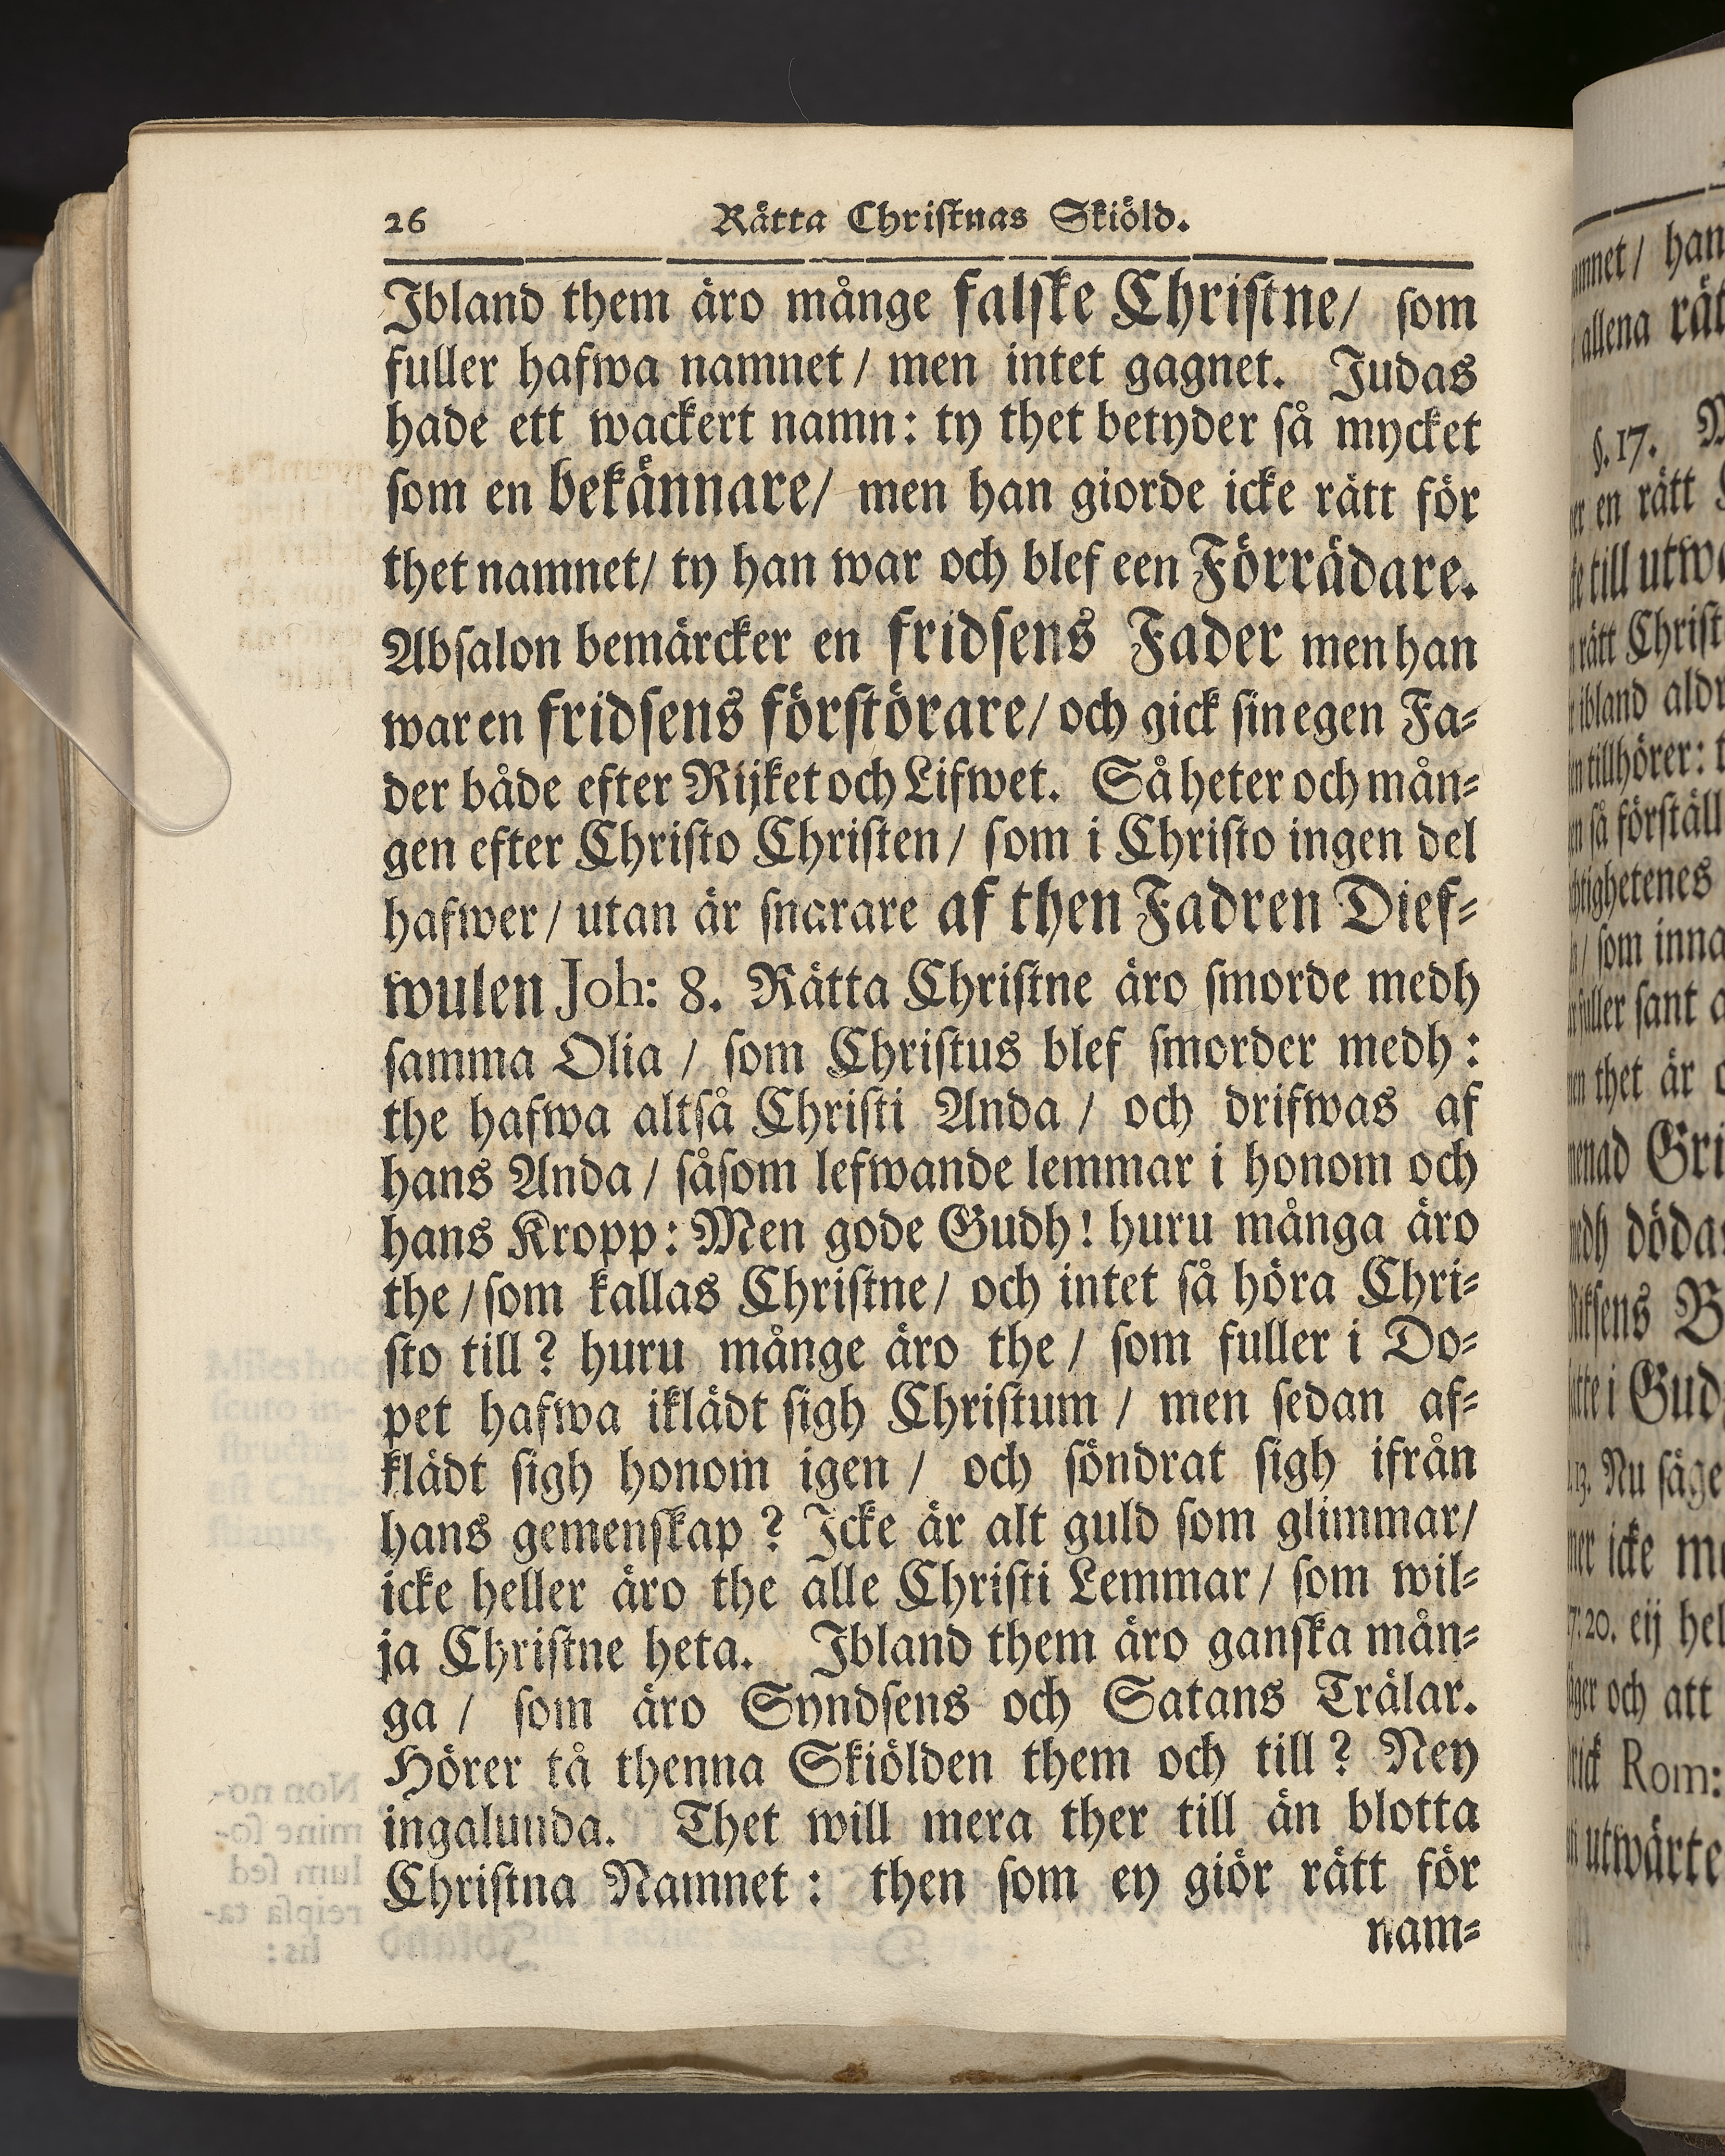 26 Rätta Christnas Skiöld.
Ibland them äro månge falske Christne/ som
fuller hafwa namnet / men intet gagnet. Judas
hade ett wackert namn: ty thet betyder så mycket
som en bekännare/ men han giorde icke rätt för
thet namnet/ ty han war och blef een Förrädare.
Absalon bemärcker en fridsens Fader men han
war en fridsens förstörare/ och gick sin egen Fa-
der både efter Rijket och Lifwet. Så heter och mån-
gen efter Christo Christen/ som i Christo ingen del
hafwer/ utan är snarare af then Fadren Dief-
wulen Joh: 8. Rätta Christne äro smorde medh
samma Olia / som Christus blef smorder medh:
the hafwa altså Christi Anda / och drifwas af
hans Anda / såsom lefwande lemmar i honom och
hans Kropp: Men gode Gudh! huru många äro
the /som kallas Christne/ och intet så höra Chri-
sto till? huru månge äro the / som fuller i Do-
pet hafwa iklädt sigh Christum / men sedan af-
klädt sigh honom igen / och söndrat sigh ifrån
hans gemenskap? Icke är alt guld som glimmar/
icke heller äro the alle Christi Lemmar/ som wil-
ja Christne heta. Ibland them äro ganska mån-
ga / som äro Syndsens och Satans Trälar.
Hörer tå thenna Skiölden them och till? Ney
ingalunda. Thet will mera ther till än blotta
Christna Namnet: then som ey giör rätt för
nam-
han
allena
§. 17.
en rätt
till
rätt Christ
ibland
tillhörer:
så
som
sant
thet är
Gri
B
i Gud
Nu
icke
20. eij
och att
Rom: